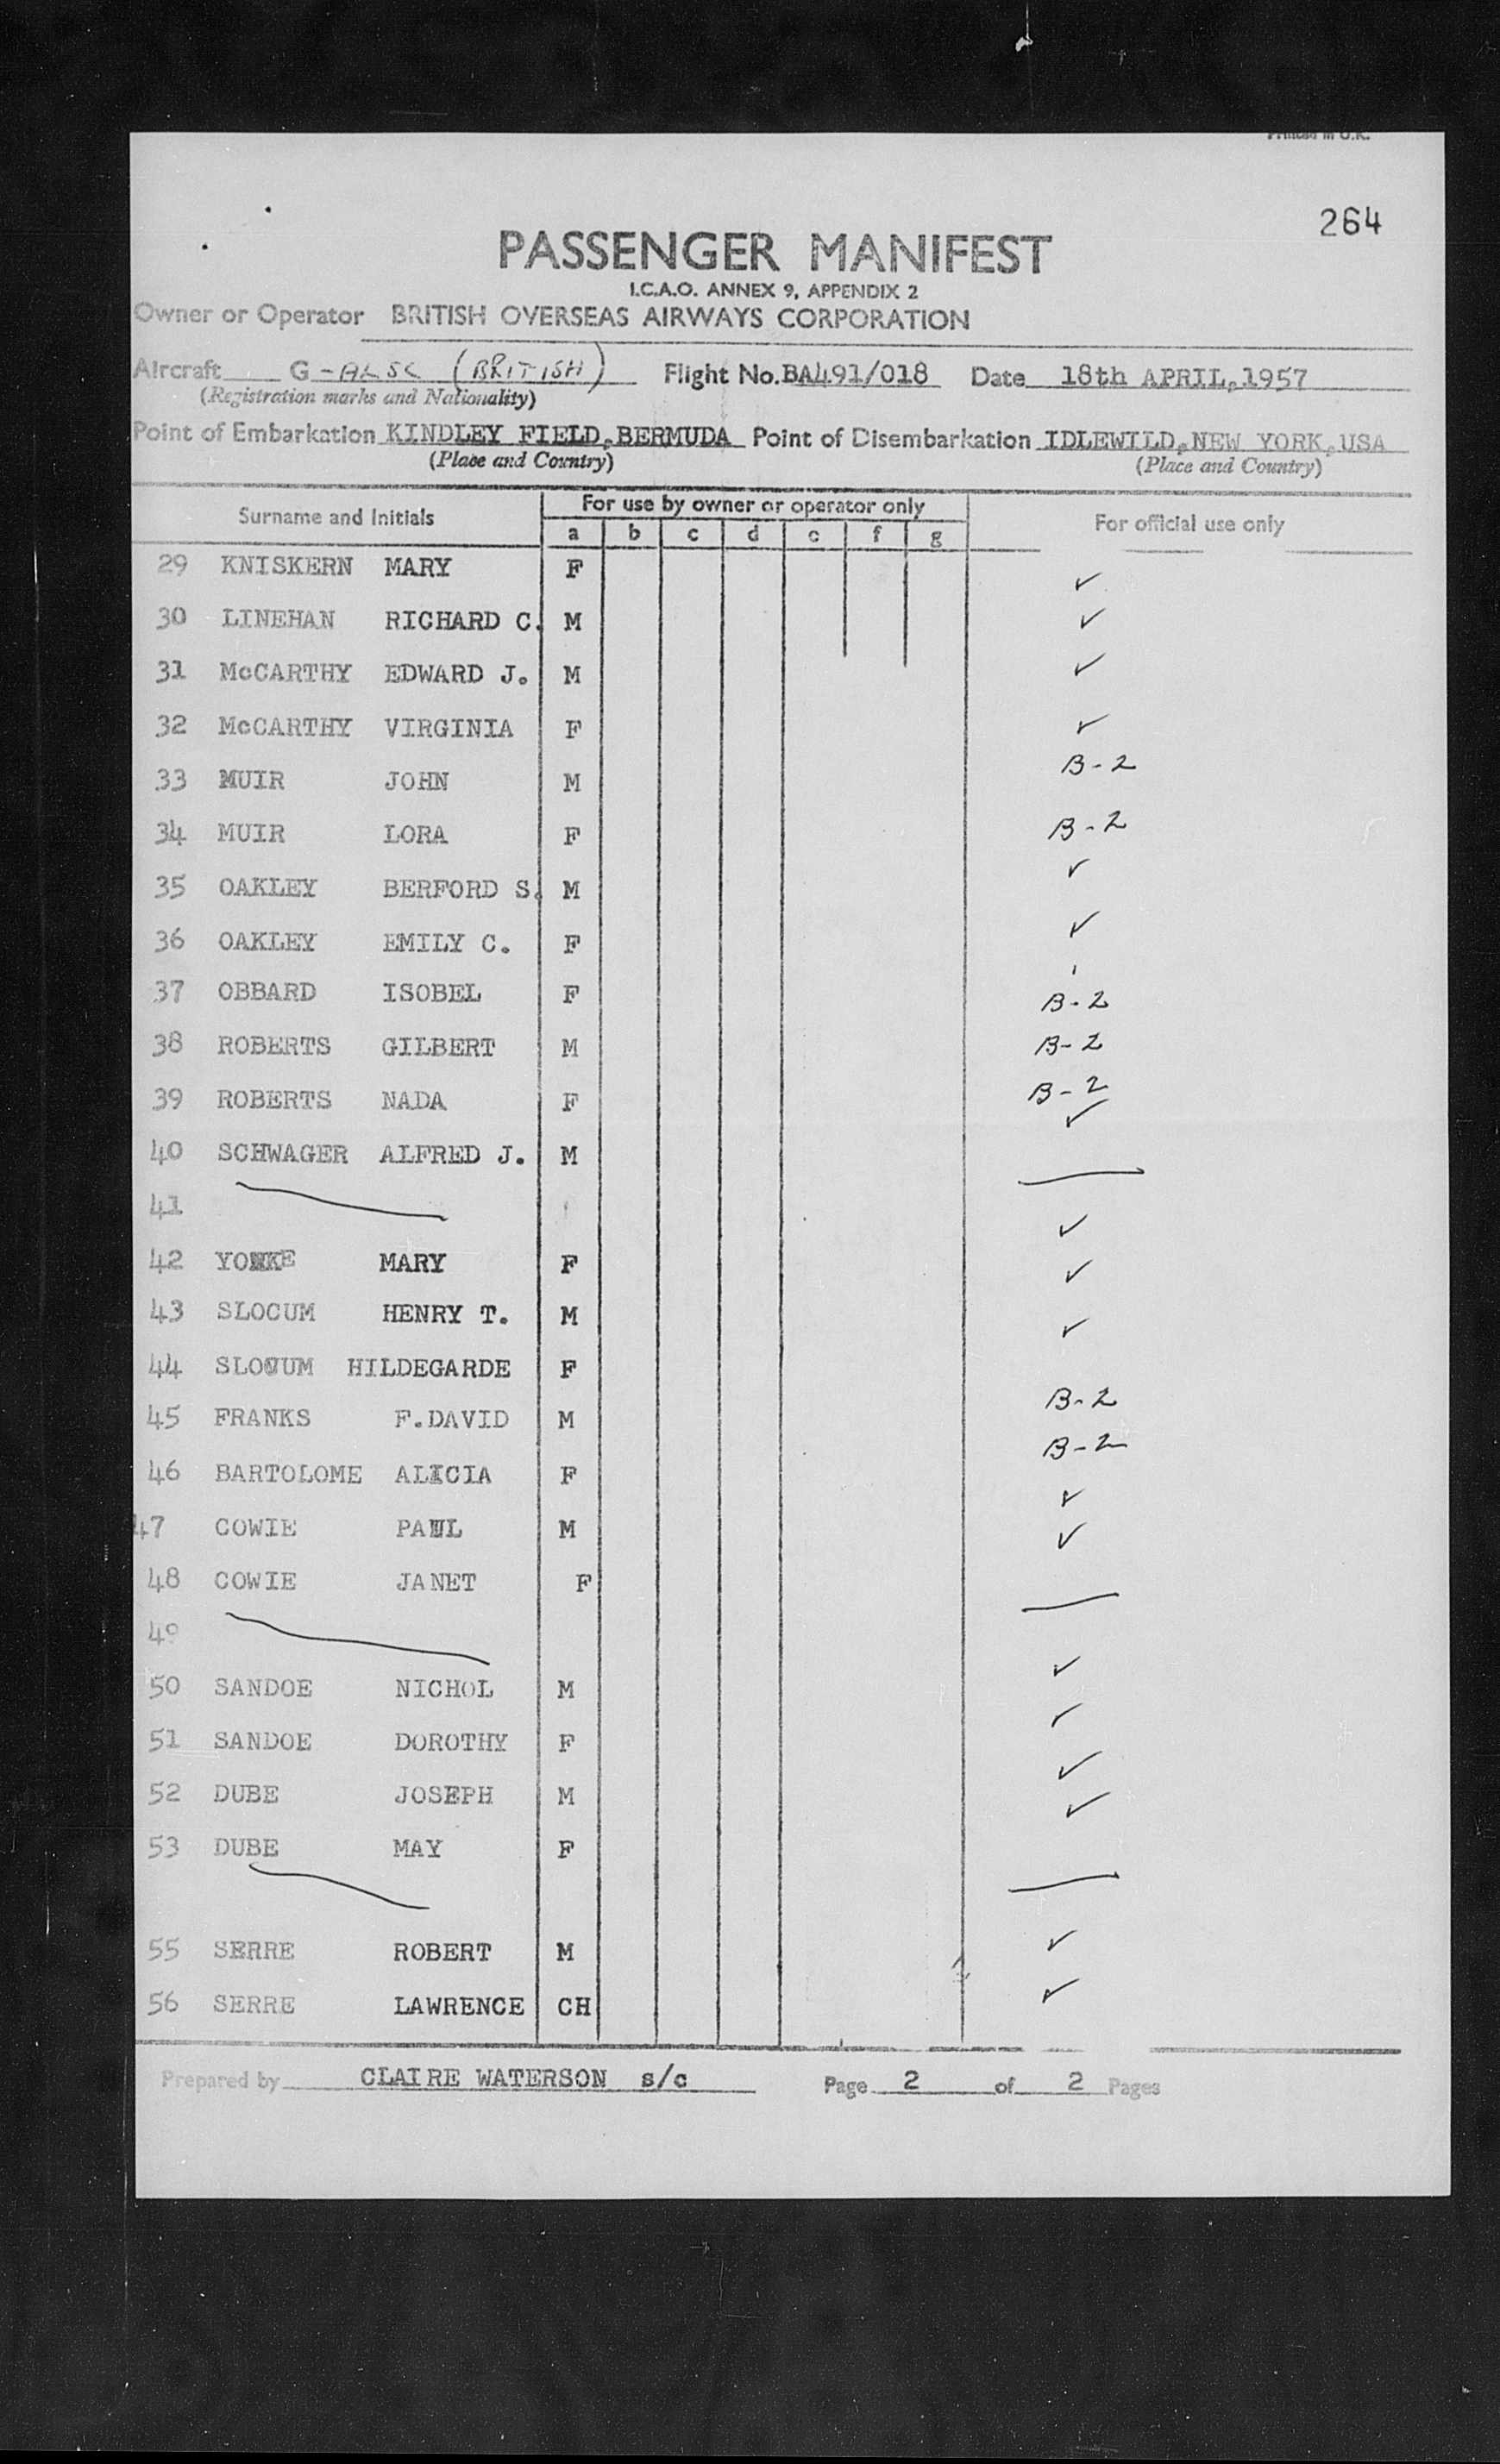 Printed in U.K.
264
PASSENGER MANIFEST
I.C.A.O. ANNEX 9, APPENDIX 2
Owner or Operator BRITISH OVERSEAS AIRWAYS CORPORATION
Aircraft G-ALSC (BRITISH) Flight No. BA491/018 Date 18th APRIL, 1957
(Registration marks and Nationality)
Point of Embarkation KINDLEY FIELD, BERMUDA Point of Disembarkation IDLEWILD, NEW YORK, USA
(Place and Country) (Place and Country)
Surname and Initials For use by owner or operator only For official use only
a b c d e f g
29 KNISKERN MARY F ✓
30 LINEHAN RICHARD C. M ✓
31 McCARTHY EDWARD J. M ✓
32 McCARTHY VIRGINIA F ✓
33 MUIR JOHN M B-2
34 MUIR LORA F B-2
35 OAKLEY BERFORD S. M ✓
36 OAKLEY EMILY C. F ✓
37 OBBARD ISOBEL F B-2
38 ROBERTS GILBERT M B-2
39 ROBERTS NADA F B-2
40 SCHWAGER ALFRED J. M ✓
41
42 MARY F ✓
43 SLOCUM HENRY T. M ✓
44 SLOCUM HILDEGARDE F ✓
45 FRANKS F.DAVID M B-2
46 BARTOLOME ALICIA F B-2
47 COWIE PAUL M ✓
48 COWIE JANET F ✓
49
50 SANDOE NICHOL M ✓
51 SANDOE DOROTHY F ✓
52 DUBE JOSEPH M ✓
53 DUBE MAY F ✓
55 SERRE ROBERT M ✓
56 SERRE LAWRENCE CH ✓
Prepared by CLAIRE WATERSON s/c Page 2 of 2 Pages